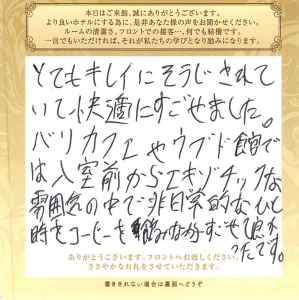 本日はご来館、誠にありがとうございます。
より良いホテルにする為に、是非あなた様の声をお聞かせください。
ルームの清潔さ、フロントでの接客…、何でも結構です。
一言でもいただければ、それが私たちの学びとなり励みになります。
とてもキレイにそうじされて
いて快適にすごせました。
バリカフェやウブド館で
は入室前からエキゾチックな
雰囲気の中で非日常的なひと
時をコーヒーを飲みながらすごせて良か
ったです。
ありがとうございます。フロントへお渡しください。
ささやかなお礼をさせていただきます。
書ききれない場合は裏面へどうぞ